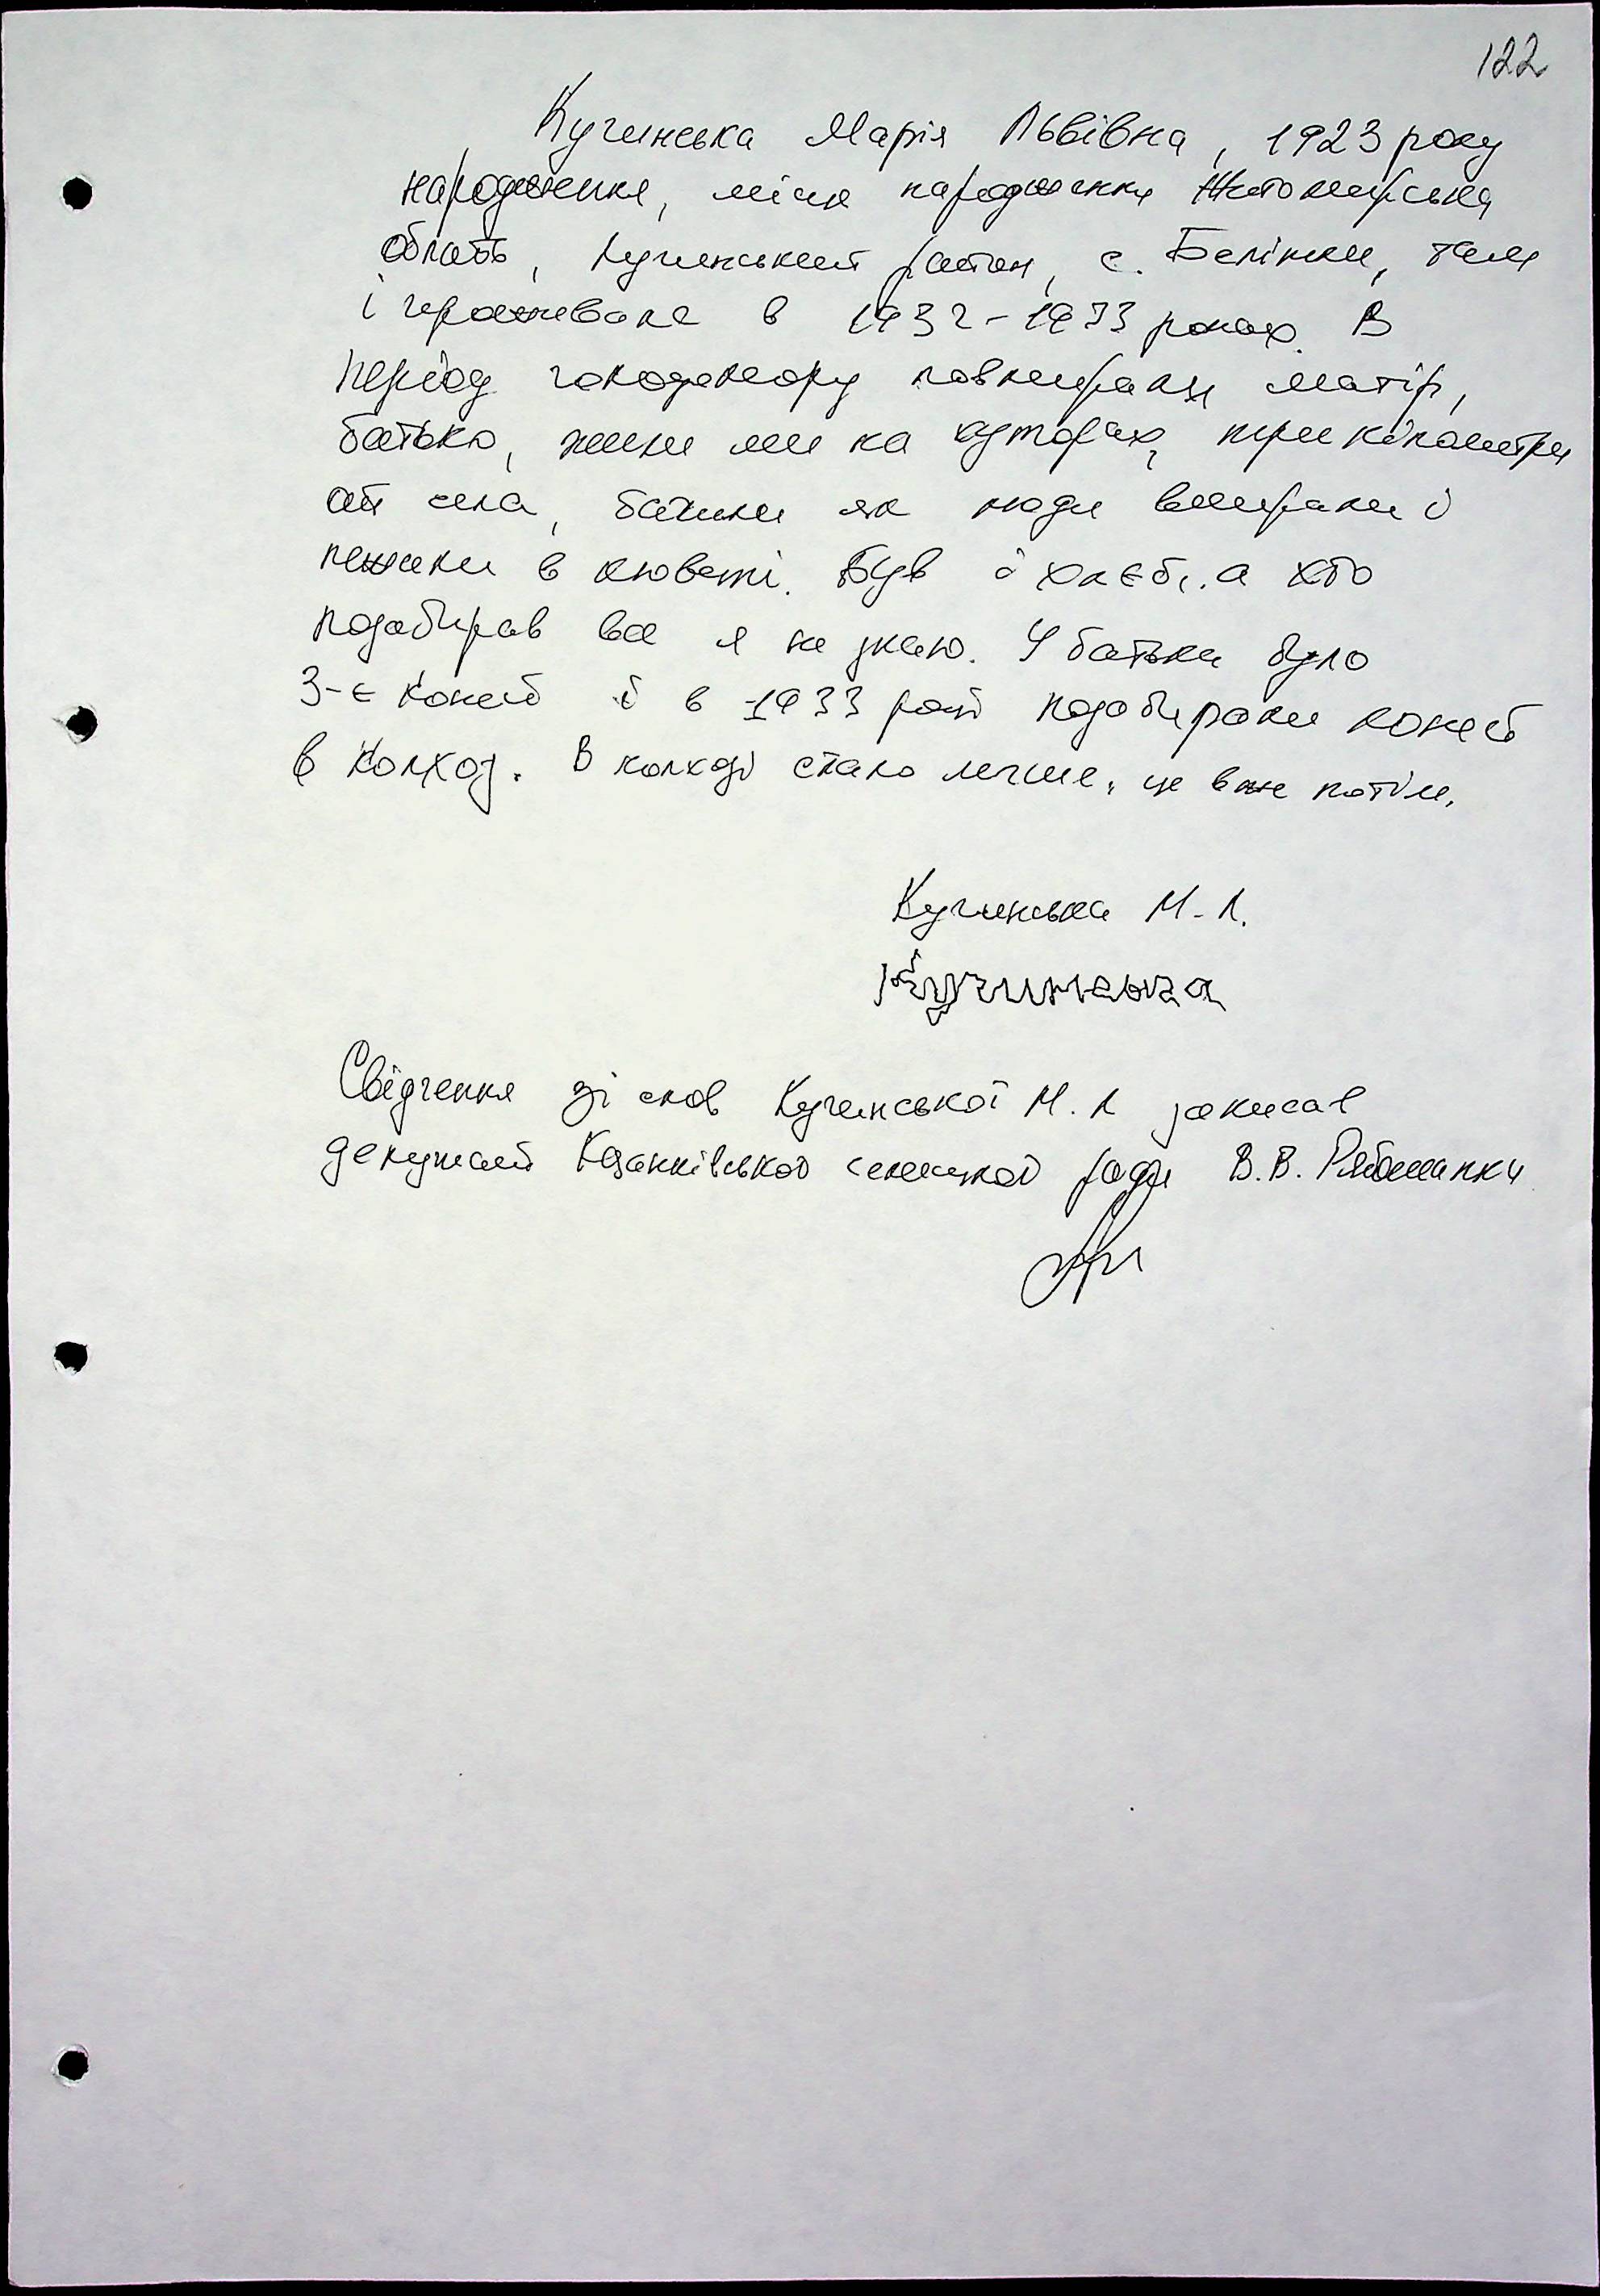 122
Кучинська Марія Львівна, 1923 року
народження, місце народження Житомирська
область, Лугинський район, с. Белінки, там
і проживала в 1932-1933 роках. В
період голодомору повмирали матір,
батько, жили ми на хуторах, три кілометри
від села, бачили як люди вмирали і
лежали в кюветі. Був і хлєб, а хто
подобирав все я не знаю. У батька було
3-є коней і в 1933 році подобирали коней
в колхоз. В колхозі стало легше, це вже потім.
Кучинська М.Л.
Кучинська
Свідчення зі слов Кучинської М.Л записав
депутат Казанківської селищної ради В.В. Рябошапка